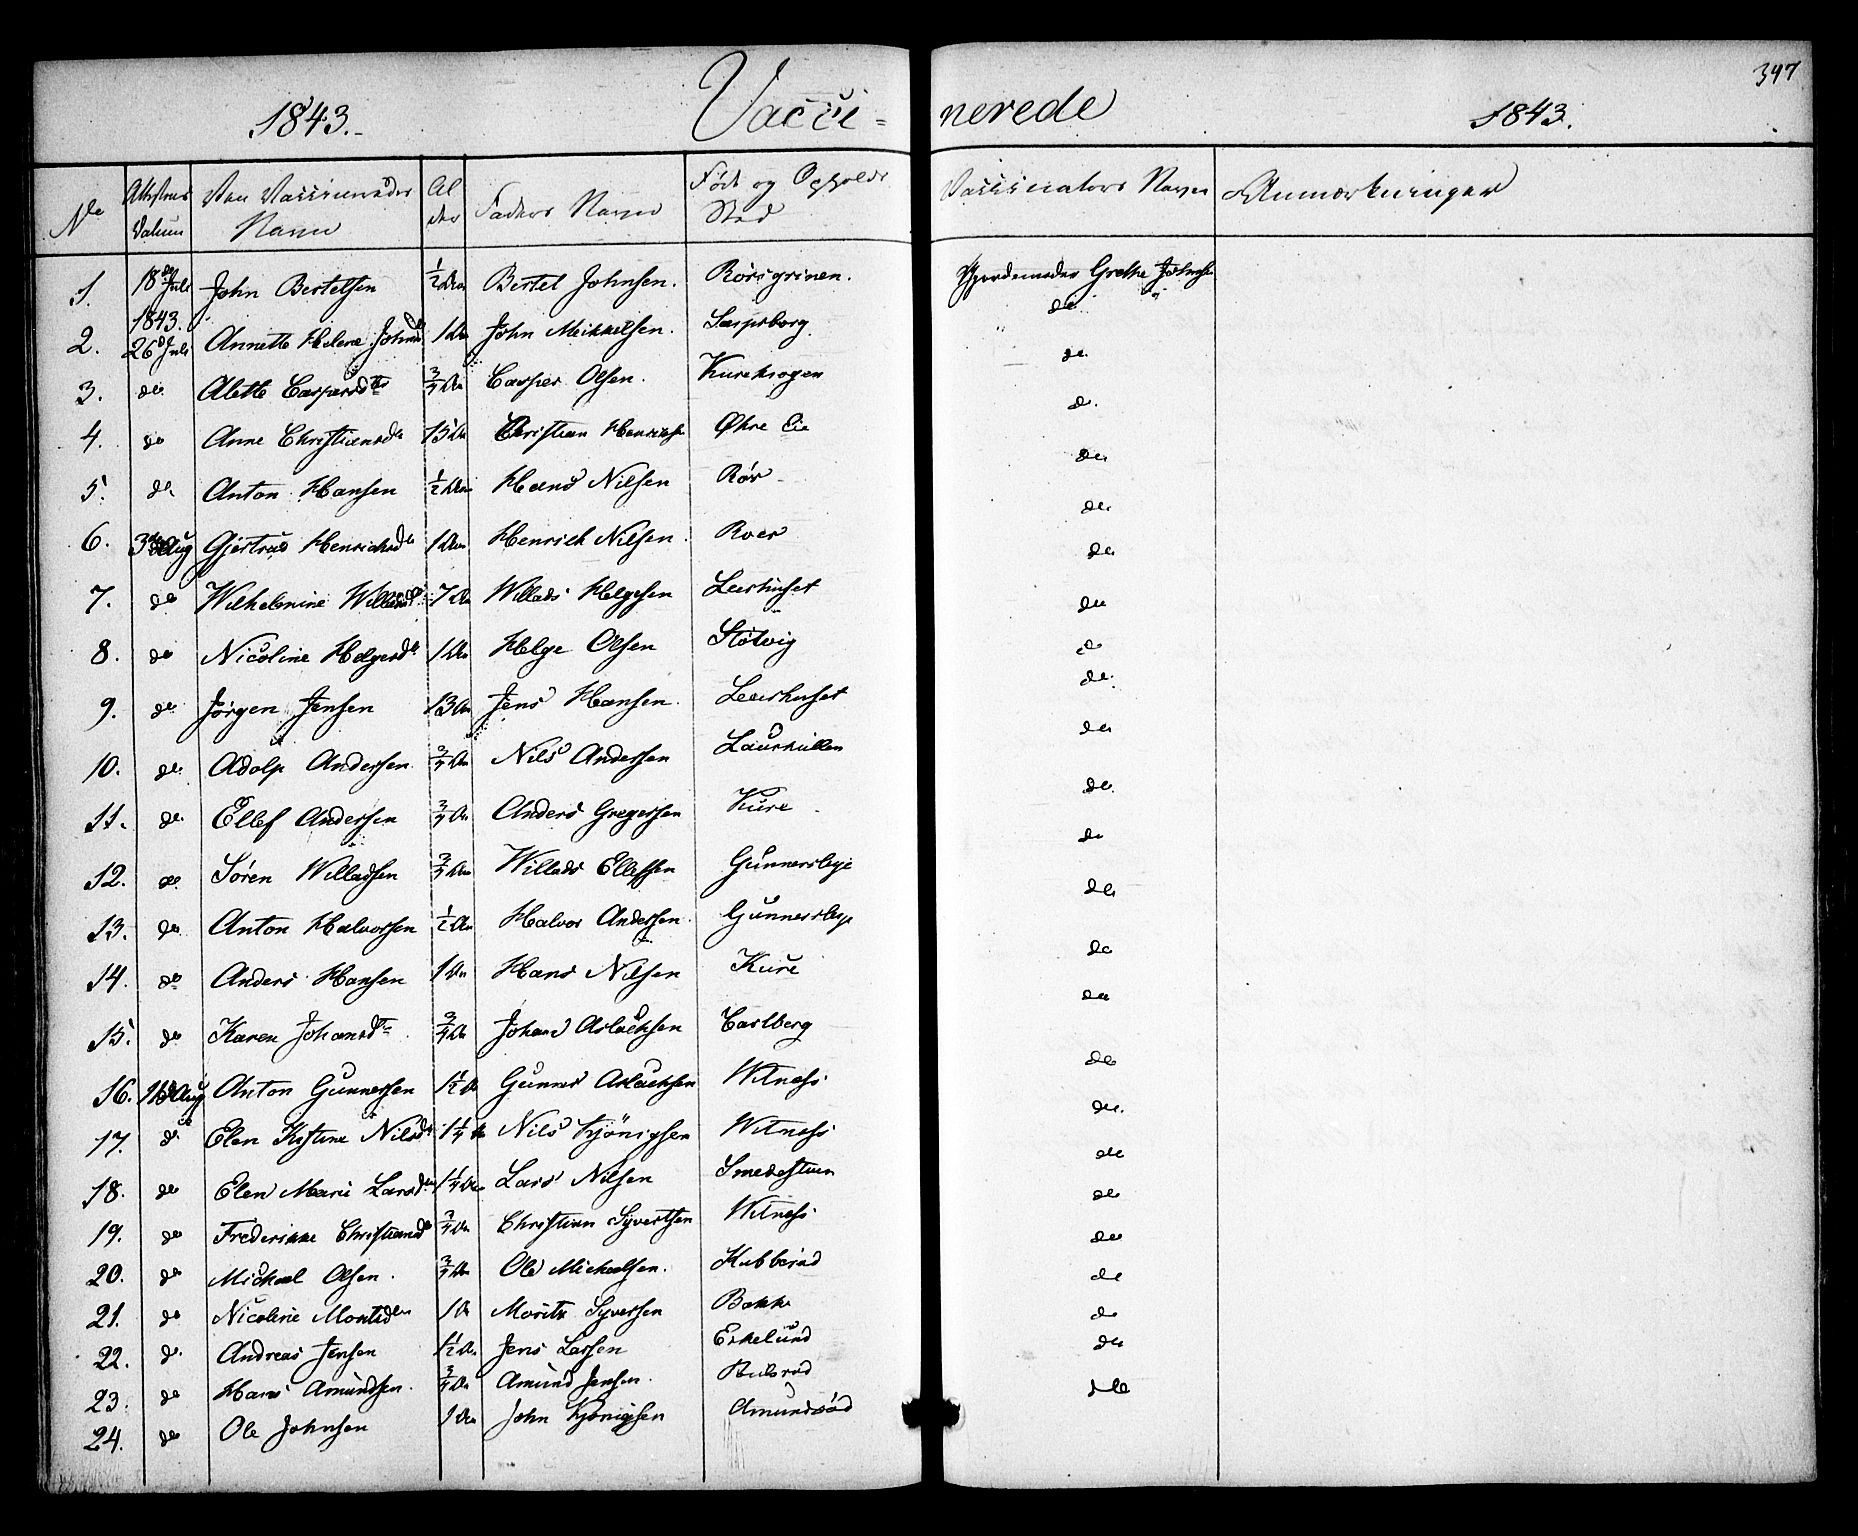 347
1843. Vacci= nerede 1843.
No Attestens Datum Den Vaccineredes Navn Alder Faders Navn Føde og Opholds Sted Vaccinators Navn Anmærkninger
1. 18de Juli 1843. John Bertelsen 1/2 Aar Bertel Johnsen. Rörsgrinen. Gjordemoder Grethe Johnsen
2. 26de Juli Annette Helene Johnsd 1 Aar John Mikkelsen. Sarpsborg do
3. do Alette Caspersdtr 3/4 Aar Casper Olsen. Kurekrogen do.
4. do Anne Christiansdr 15 Aar Christian Henriksen Øhre Eie do.
5. do Anton Hansen 1/2 Aar Hans Nilsen Rör do
6. 3die Aug Gjertrud Henrichsdr 1 Aar Henrich Nilsen Roer do
7. do Wilhelmine Willadsdr 7 Aar Willads Helgesen Leerhuset do
8. do Nicoline Helgesdr 1 Aar Helge Olsen Støtvig do
9. do Jørgen Jensen 13 Aar Jens Hansen. Leerhuset do
10. do Adolp Andersen 3/4 Aar Nils Andersen Laurkullen do.
11. do Ellef Andersen 3/4 Aar Anders Gregersen Kure do
12. do Sören Willadsen 3/4 Aar Willads Ellefsen Gunnersbye do
13. do Anton Halvorsen 1/2 Aar Halvor Andersen. Gunnersbye do
14. do Anders Hansen 1 Aar Hans Nilsen Kure do
15. do Karen Johansdtr 3/4 Aar Johan Aslacksen Carlberg do
16. Aug Anton Gunnersen 1 1/2 Aar Gunner Aslacksen Witness do
17. do Elen Kistine Nilsdr 1 1/4 Aar Nils Kjönigsen Witness do
18. do Elen Marie Larsdr 1 1/4 Aar Lars Nilsen Smedestuen do.
19. do Frederikke Christiansd 3/4 Aar Christian Syvertsen Witness do
20. do Michael Olsen. 3/4 Aar Ole Michaelsen. Kubberød do
21. do Nicoline Moritsdr 1 Ar Morits Syversen Bakke do
22. do Andreas Jensen 1 1/2 Aar Jens Larsen Eskelund do
23. do Hans Amundsen. 3/4 Aar Amund Jensen. do
24. do Ole Johnsen 1 Aar John Kjönigsen Amundrød do
do
do